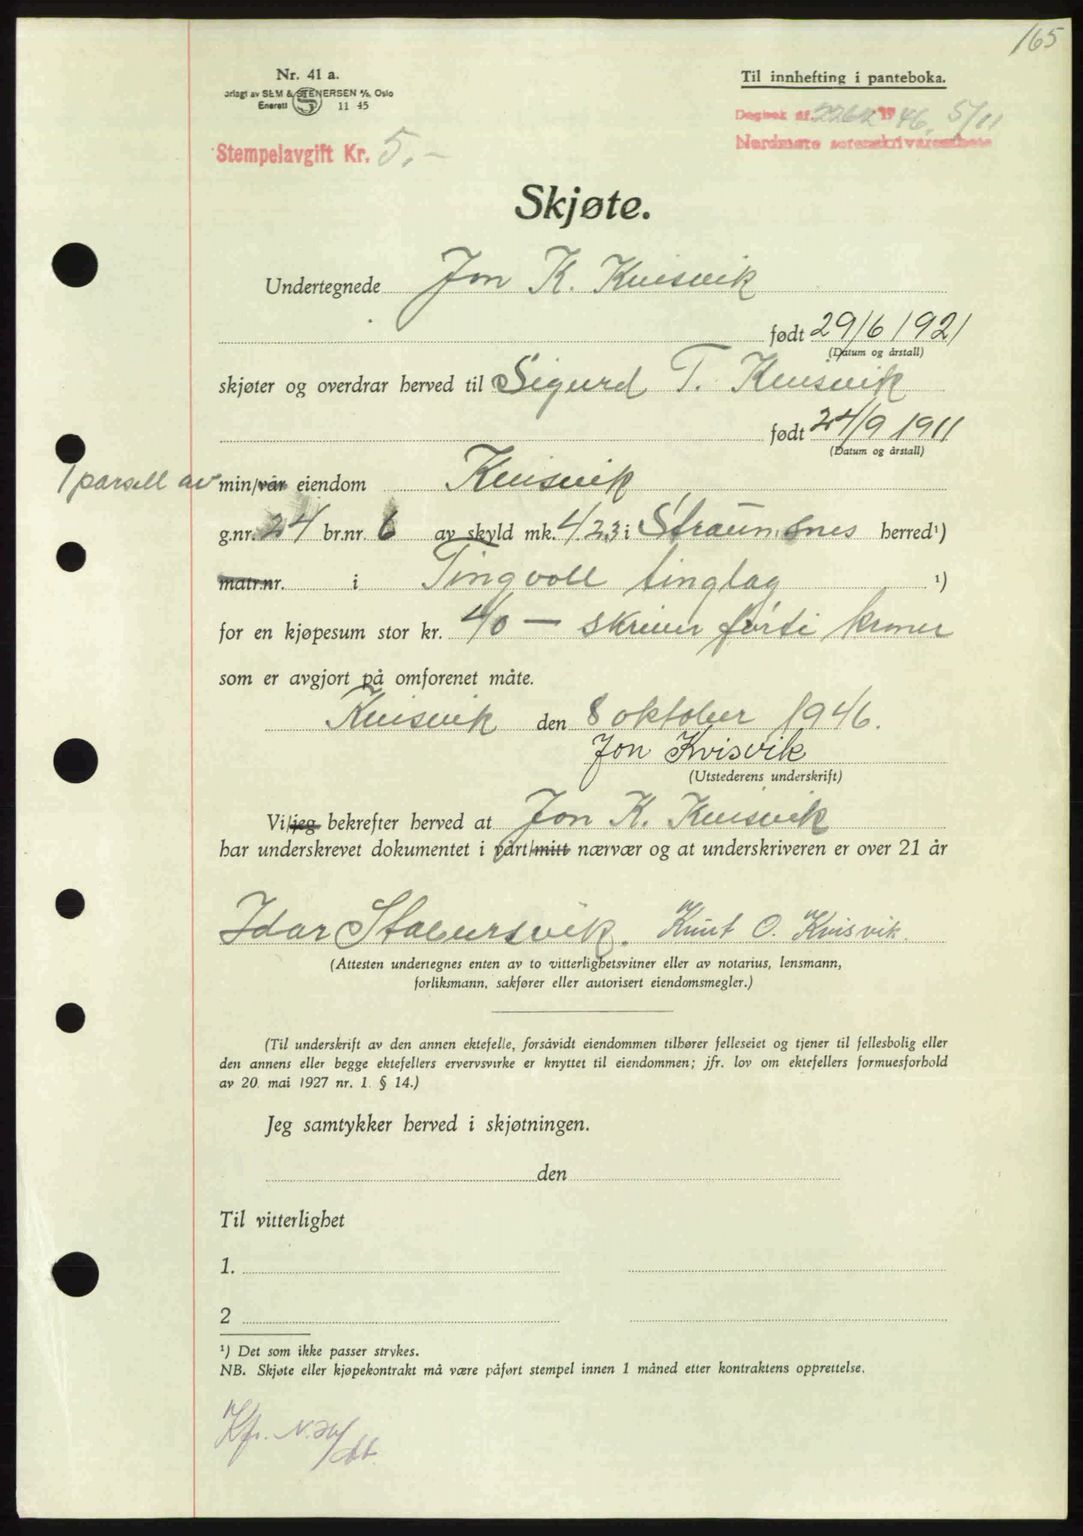 165
Nr. 41 a.
orlagt av SEM & STENERSEN A/S, Oslo
Enerett S 11 45
Til innhefting i panteboka.
Dagbok nr. 2262 1946, 5/11
Nordmøre sorenskriverembete
Stempelavgift Kr. 5,-
Skjøte.
Undertegnede Jon K. Kvisvik
født 29/6 1921
(Datum og årstall)
skjøter og overdrar herved til Sigurd T. Kvisvik
født 24/9 1911
(Datum og årstall)
1 parsell av min/vår eiendom Kvisvik
g.nr. 24 br.nr. 6 av skyld mk. 4.23 i Straumsnes herred ¹)
matr.nr. i Tingvoll tinglag ¹)
for en kjøpesum stor kr. 40 — skriver førti kroner
som er avgjort på omforenet måte.
Kvisvik den 8 oktober 1946.
Jon Kvisvik
(Utstederens underskrift)
Vi/jeg bekrefter herved at Jon K. Kvisvik
har underskrevet dokumentet i vårt/mitt nærvær og at underskriveren er over 21 år
Idar Stabursvik. Knut O. Kvisvik.
(Attesten undertegnes enten av to vitterlighetsvitner eller av notarius, lensmann,
forliksmann, sakfører eller autorisert eiendomsmegler.)
(Til underskrift av den annen ektefelle, forsåvidt eiendommen tilhører felleseiet og tjener til fellesbolig eller
den annens eller begge ektefellers ervervsvirke er knyttet til eiendommen; jfr. lov om ektefellers formuesforhold
av 20. mai 1927 nr. 1 § 14.)
Jeg samtykker herved i skjøtningen.
den
Til vitterlighet
1.
2
¹) Det som ikke passer strykes.
NB. Skjøte eller kjøpekontrakt må være påført stempel innen 1 måned etter kontraktens opprettelse.
Kfr. N.